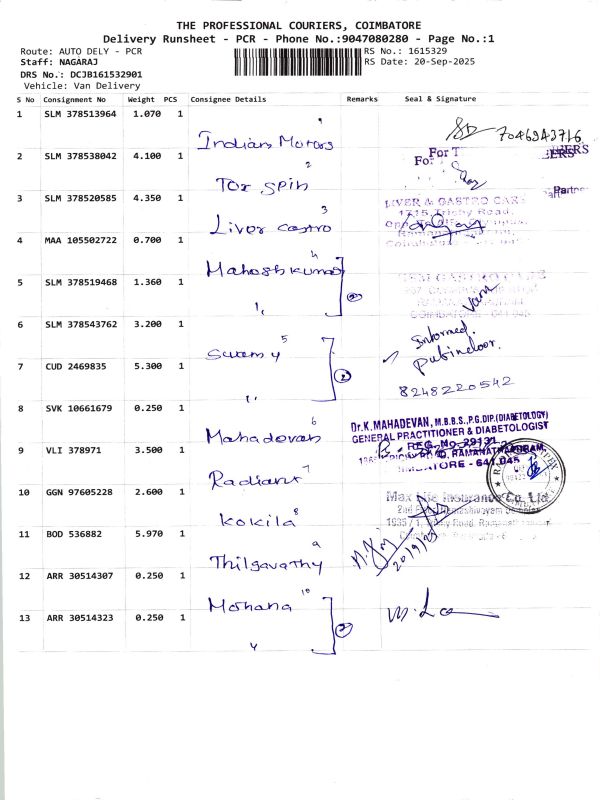 THE PROFESSIONAL COURIERS, COIMBATORE
Delivery Runsheet - PCR - Phone No.:9047080280 - Page No.:1
Route: AUTO DELY - PCR RS No.: 1615329
Staff: NAGARAJ RS Date: 20-Sep-2025
DRS No.: DCJB161532901
Vehicle: Van Delivery
S No Consignment No Weight PCS Consignee Details Remarks Seal & Signature
1 SLM 378513964 1.070 1
Indian Motors 7046943716
2 SLM 378538042 4.100 1
2
Tor spin
3 SLM 378520585 4.350 1
3
Liver castro
LIVER & GASTRO CARE
1715, Trichy Road,
4 MAA 105502722 0.700 1
4
Maheshkumar
5 SLM 378519468 1.360 1
2
6 SLM 378543762 3.200 1
5
Swamy
Informed.
7 CUD 2469835 5.300 1
2
8248220542
8 SVK 10661679 0.250 1
6
Mahadevan
Dr.K.MAHADEVAN, M.B.B.S.,P.G.DIP.(DIABETOLOGY)
GENERAL PRACTITIONER & DIABETOLOGIST
REG. No. 29131
9 VLI 378971 3.500 1
RAMANATHAPURAM,
COIMBATORE - 641 045
7
Radiant
10 GGN 97605228 2.600 1
8
kokila
Max Life Insurance Co. Ltd
11 BOD 536882 5.970 1
9
Thilgavathy
20/9/25
12 ARR 30514307 0.250 1
10
Mohana
13 ARR 30514323 0.250 1
2